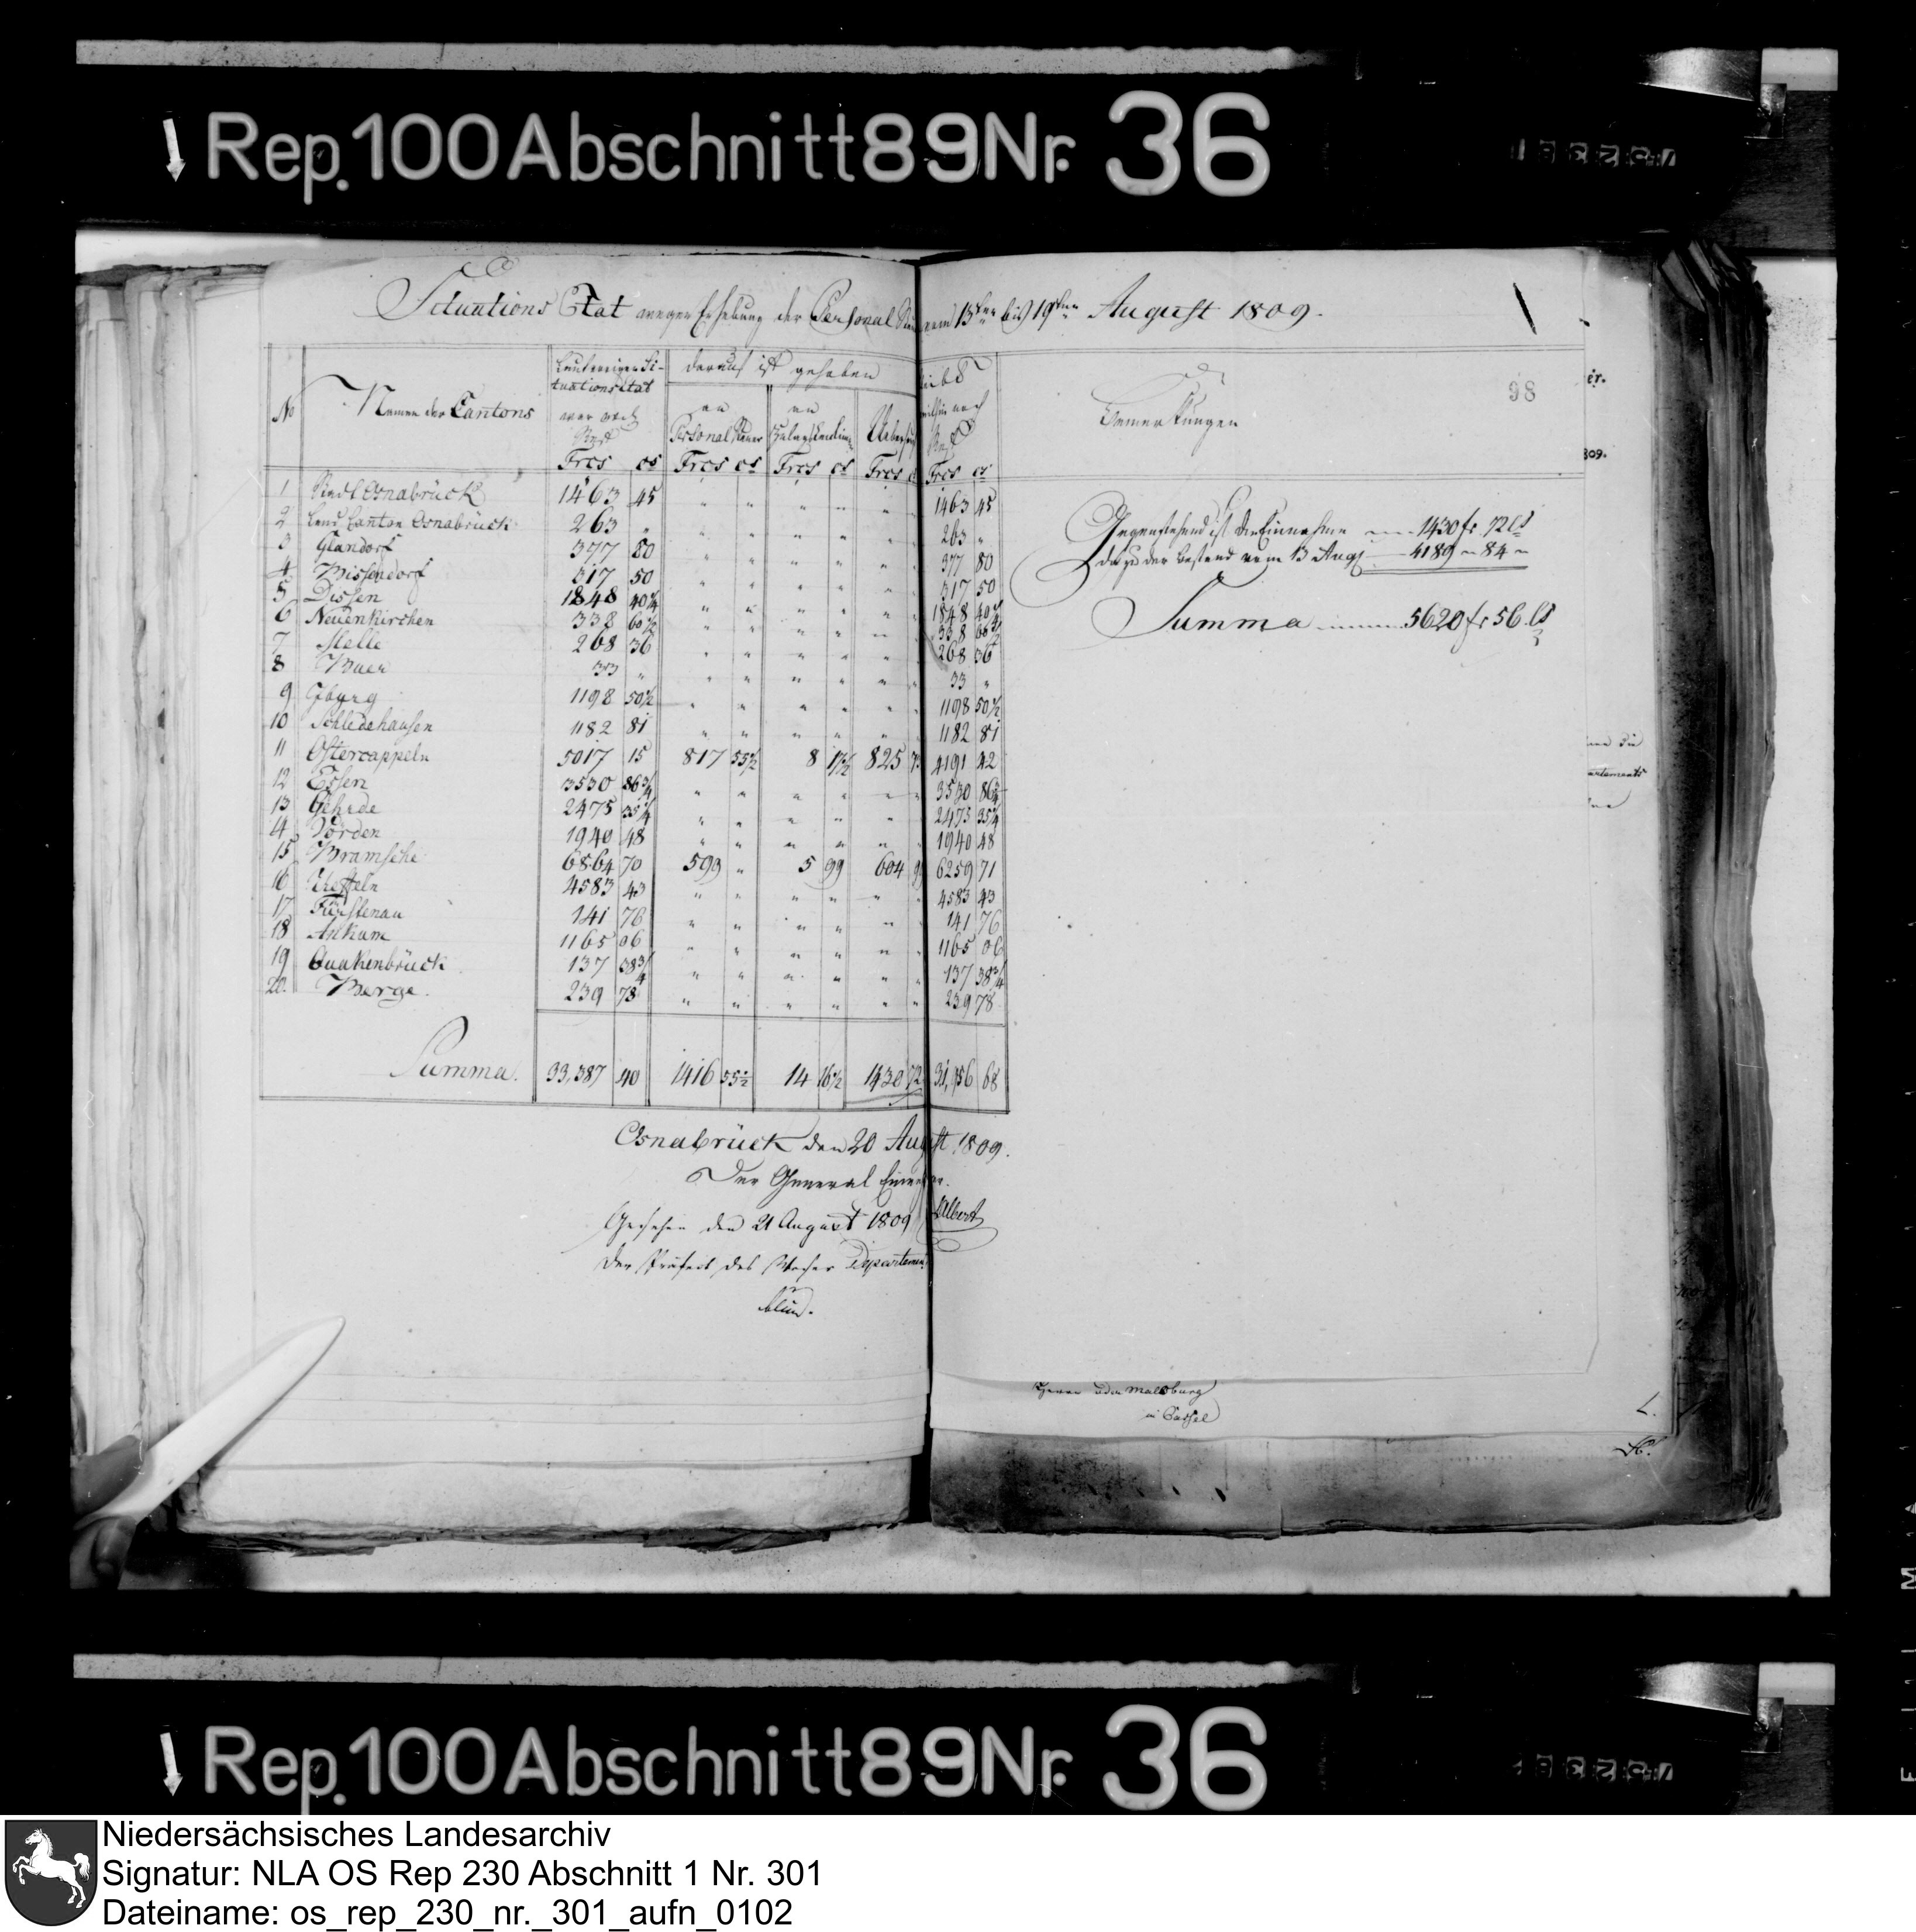 Rep. 100 Abschnitt 89 Nr. 36
Situations Etat wegen Erhebung der Personal Steuer vom 13ten bis 19ten August 1809.
98
No Namen der Cantons
Laut vorigen Situationsetat war noch Rest
Frcs cs
daraus ist gehoben
an Personal Steuer Frcs cs
an Frcs cs
Ueberhaupt Frcs c
bleibt mithin noch Rest
Frcs cs
Bemerkungen
1 Stadt Osnabrück 1463 45 " " " " " " 1463 45
2 Land Canton Osnabrück 263 " " " " " " " 263 "
3 Glandorf 377 80 " " " " " " 377 80
4 Bissendorf 317 50 " " " " " " 317 50
5 Dissen 1848 40 1/4 " " " " " " 1848 40 1/4
6 Neuenkirchen 338 60 1/2 " " " " " " 338 60 1/2
7 Melle 268 36 " " " " " " 268 36
8 Buer 33 " " " " " " " 33 "
9 Iburg 1198 50 1/2 " " " " " " 1198 50 1/2
10 Schledehausen 1182 81 " " " " " " 1182 81
11 Ostercappeln 5017 15 817 55 1/2 8 17 1/2 825 73 4191 42
12 Essen 3530 86 3/4 " " " " " " 3530 86 3/4
13 Gehrde 2475 35 1/4 " " " " " " 2475 35 1/4
14 Vörden 1940 48 " " " " " " 1940 48
15 Bramsche 6864 70 599 " 5 99 604 99 6259 71
16 Ueffeln 4583 43 " " " " " " 4583 43
17 Fürstenau 141 76 " " " " " " 141 76
18 Ankum 1165 06 " " " " " " 1165 06
19 Quakenbrück 137 38 3/4 " " " " " " 137 38 3/4
20. Berge. 239 78 " " " " " " 239 78
Summa. 33,387 40 1416 55 1/2 14 16 1/2 1430 72 31,956 68
Gegenstehend ist die Einnahme 1430 fr. 72 cs
dazu der Bestand vom 13 Aug. 4189 " 84 "
Summa 5620 fr 56 cs
Osnabrück den 20 August 1809.
Der General Einnehmer.
Albert
Gesehen den 21 August 1809
Der Präfect des Weser Departements
Herrn von Malsburg
in Cassel
ér.
809.
Rep. 100 Abschnitt 89 Nr. 36
Niedersächsisches Landesarchiv
Signatur: NLA OS Rep 230 Abschnitt 1 Nr. 301
Dateiname: os_rep_230_nr._301_aufn_0102